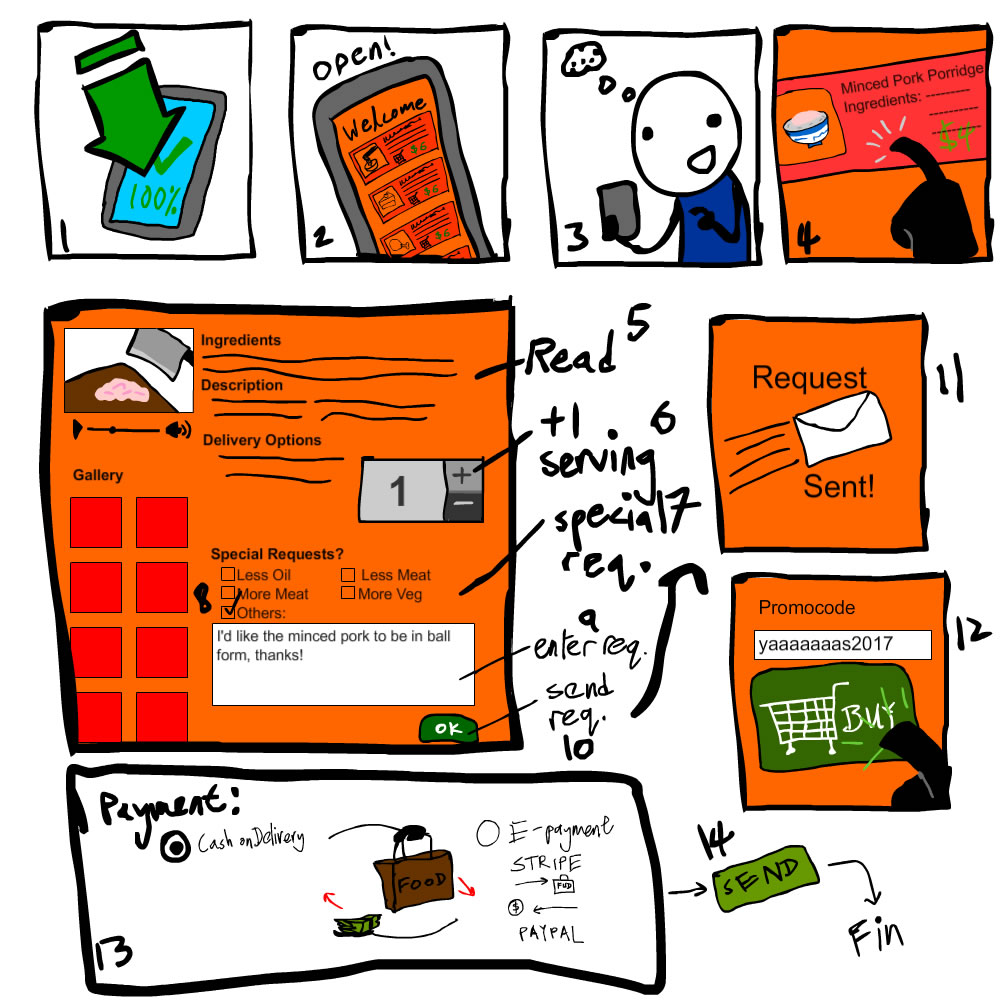 100%
1
OPEN!
Welcome
$6
$6
$6
2
3
Minced Pork Porridge
Ingredients:
$4
4
Ingredients
Description
Delivery Options
Gallery
1
+
-
Special Requests?
Less Oil
Less Meat
More Meat
More Veg
Others:
I'd like the minced pork to be in ball
form, thanks!
OK
Read 5
+1 6
serving
special 7
req.
8
9
enter req.
send
req.
10
Request
Sent!
11
Promocode
yaaaaaaas2017
BUY
12
Payment:
Cash on Delivery
FOOD
E-payment
STRIPE
FUD
$
PAYPAL
13
14
SEND
Fin